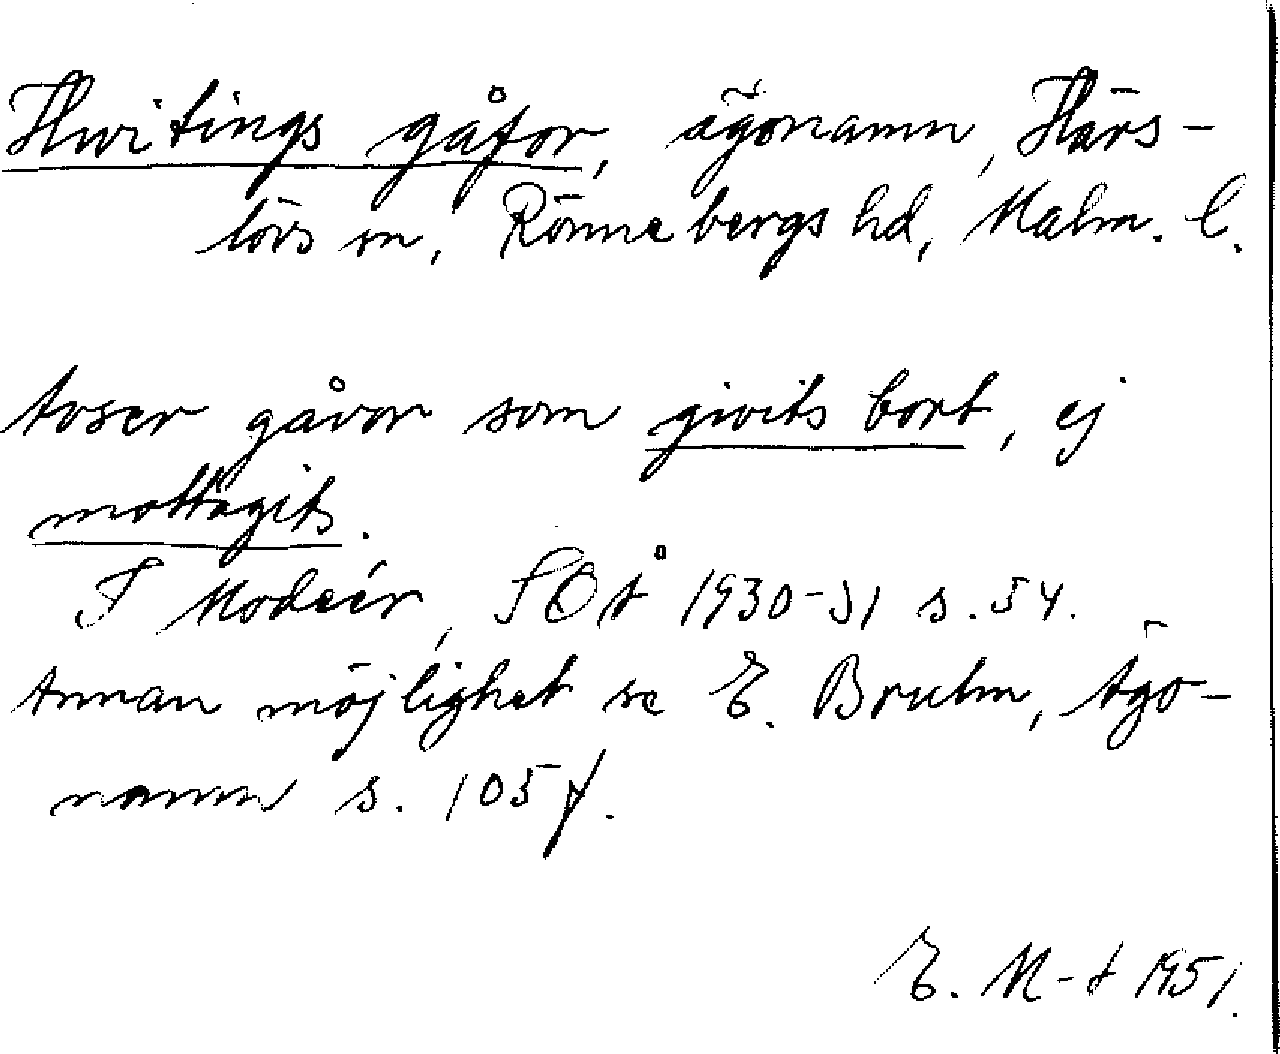 Hwitings gåfor, ägonamn, Härs-
lövs sn, Rönnebergs hd, Malm. l.
avser gåvor som givits bort, ej
mottagits.
I Modéer, SOÅ 1930-31 s. 54.
Annan möjlighet se E. Bruhn, Ägo-
namn s. 105 f.
E. M-t 1951.